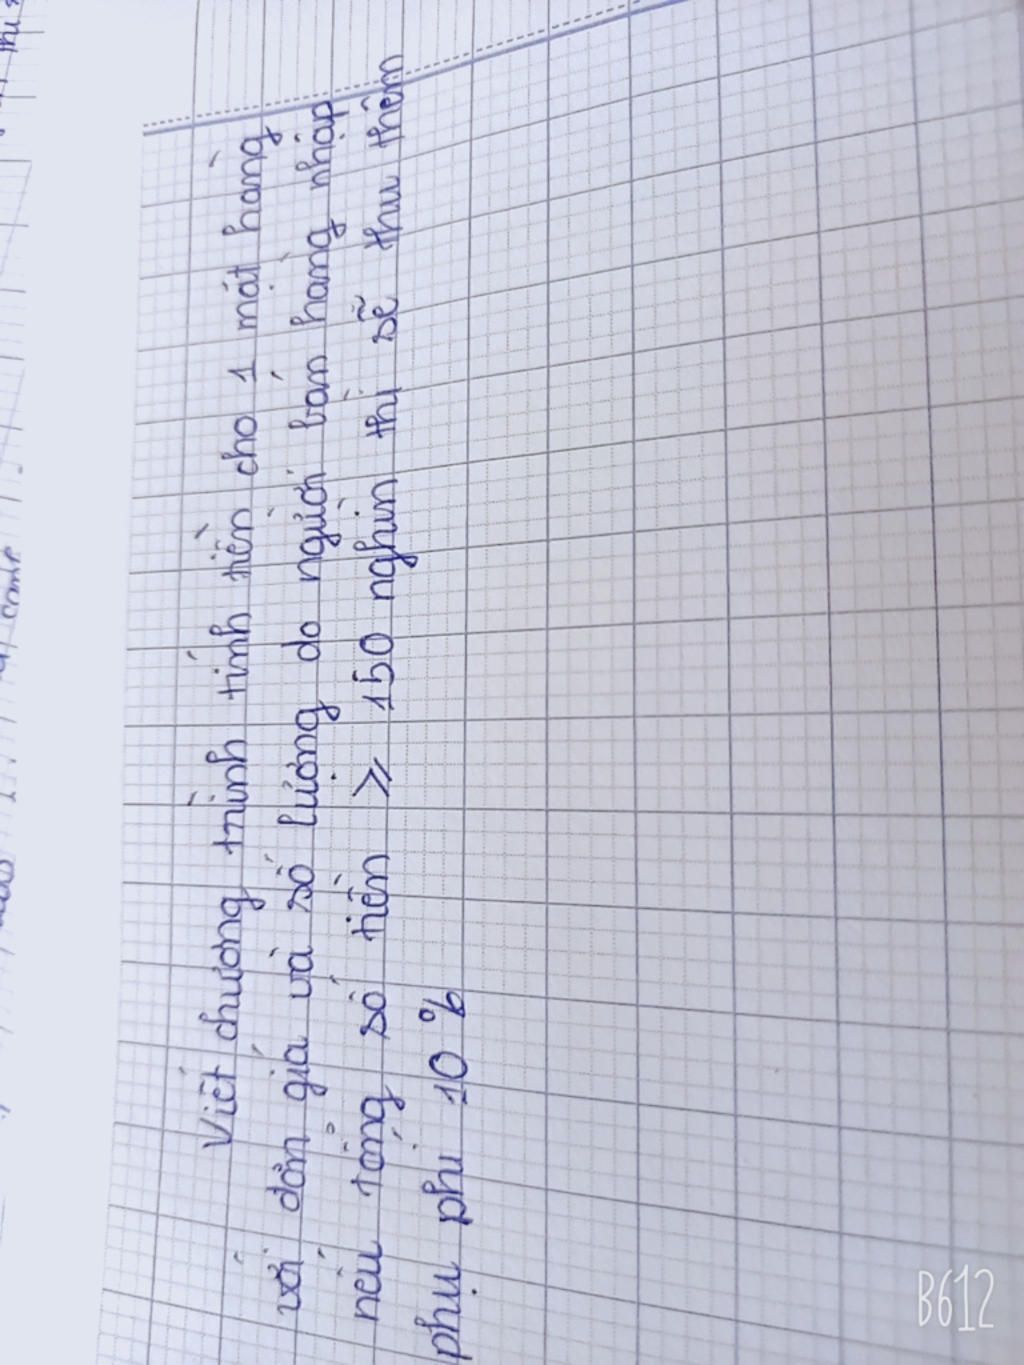 Viết chương trình tính tiền cho 1 mặt hàng
với đơn giá và số lượng do người bán hàng nhập
nếu tổng số tiền ≥ 150 nghìn thì sẽ thu thêm
phụ phí 10 %
B612